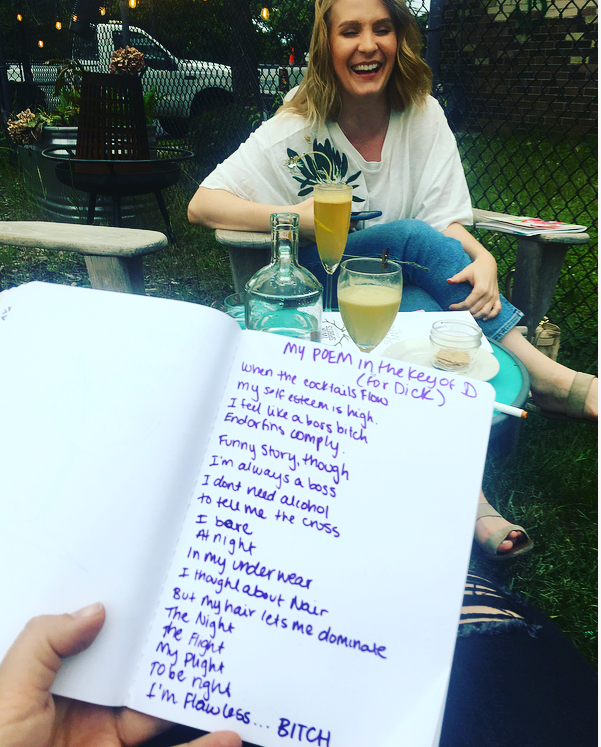 MY POEM in the Key of D
(for DICK)
When the cocktails Flow
my self esteem is high.
I feel like a boss bitch
Endorfins comply.
Funny Story, though
I'm always a boss
I dont need alcohol
to tell me the cross
I bare
At night
In my underwear
I thought about Nair
But my hair lets me dominate
The Night
the Flight
My Plight
To be right
I'm Flawless... BITCH